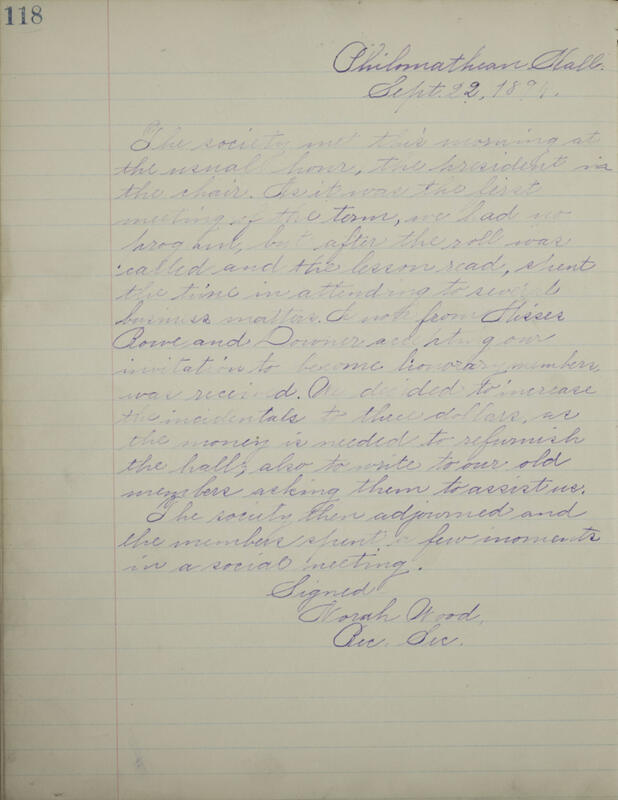 118
Philomathean Hall.
Sept. 22, 189
The society met this morning at
the usual hour, the president in
the chair. As it was the first
meeting of the term, we had no
program, but after the roll was
called and the lesson read, spent
the time in attending to several
business matters. A note from Misses
Rowe and Downer accepting our
invitation to become honorary members,
was received. We decided to increase
the incidentals to three dollars, as
the money is needed to refurnish
the hall; also to write to our old
members asking them to assist us.
The society then adjourned and
the members spent a few moments
in a social meeting.
Signed
Norah Wood,
Rec. Sec.